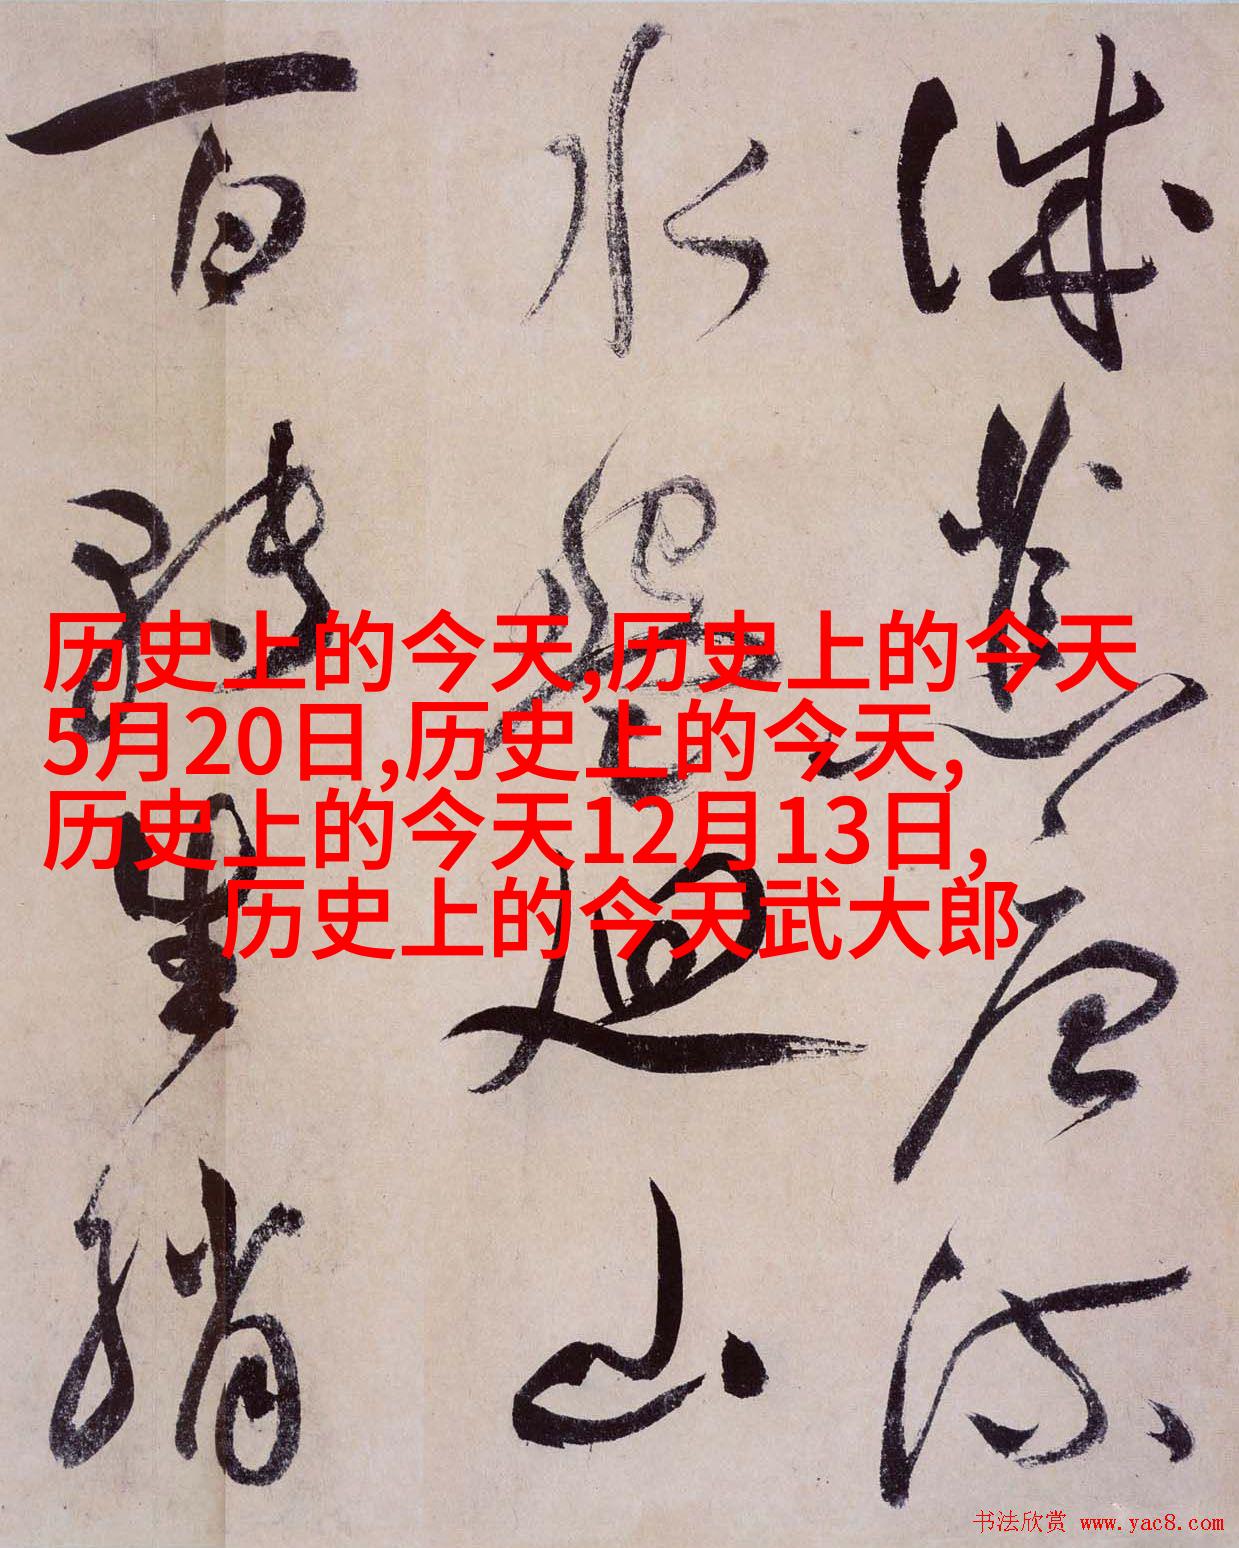 誠荒唐流
水盤迴山
百轉生綃
历史上的今天,历史上的今天
5月20日,历史上的今天,
历史上的今天12月13日,
历史上的今天武大郎
书法欣赏 www.yac8.com